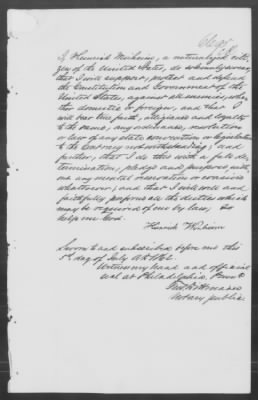 I, Heinrich, a naturalized citi-
zen of the United States, do solemnly swear
that I will support, protect and defend
the Constitution and Government of the
United States, against all enemies, whe-
ther domestic or foreign, and that I
will bear true faith, allegiance and loyalty
to the same, any ordinance, resolution
or law of any state convention or legislature
to the contrary notwithstanding; and
further, that I do this with a full de-
termination, pledge and purpose with-
out any mental reservation or evasion
whatsoever; and that I will well and
faithfully perform all the duties which
may be required of me by law; So
help me God.
Heinrich
Sworn to and subscribed before me this
5th day of July A.D. 1862.
Witness my hand and official
seal at Philadelphia, Penna
Notary public